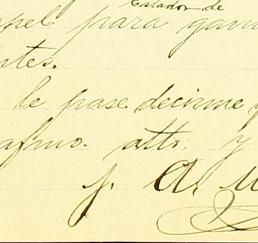 Estados de
apel para gam
ntes.
le pase decirme
afmo. atto. y
J. A. M